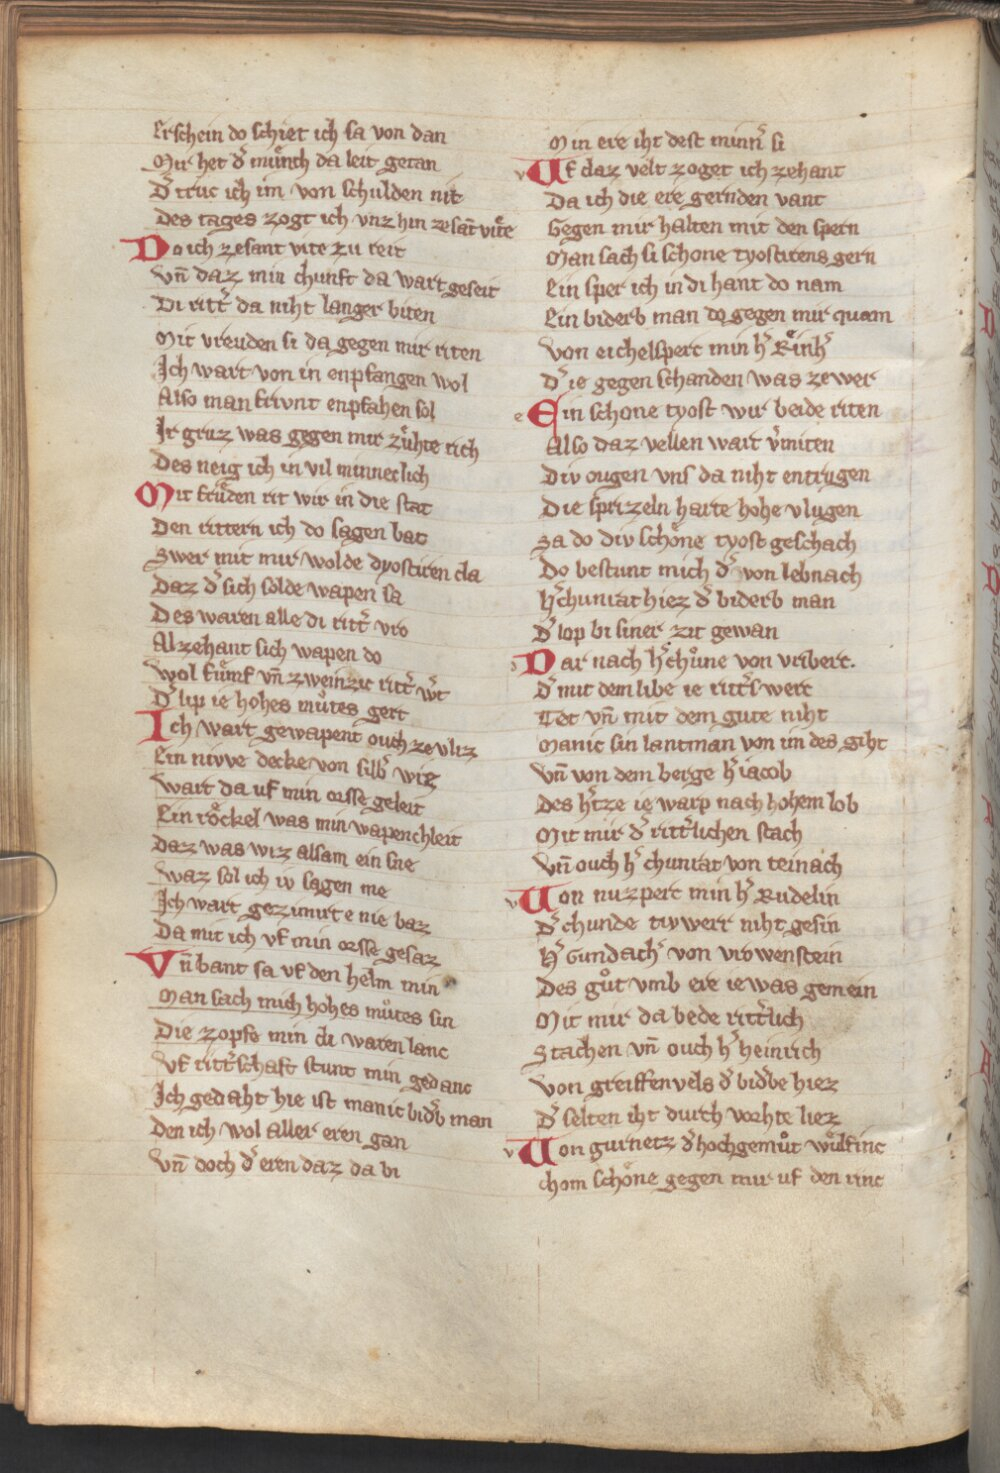 Erschein do schiet ich sa von dan
Mir het d᷑ mu̇nch da leit getan
D᷑ truc ich im von schulden nit
Des tages zogt ich vnz hin ze sāt vite
Do ich ze sant vite zu reit
Vn̄ daz min chunft da wart geseit
Di ritt᷑ da niht langer biten
Mit vreuden si da gegen mir riten
Ich wart von in enpfangen wol
Also man frivnt enpfahen sol
Ir gruz was gegen mir zuͤhte rich
Des neig ich in vil minnerlich
Mit fruͤden rit wir in die stat
Den rittern ich do sagen bat
Swer mit mir wolde dyostiren da
Daz d᷑ sich solde wapen sa
Des waren alle di ritt᷑ vro
Alzehant sich wapen do
Wol fuͤnf vn̄ zweinzic ritt᷑ w᷑t
D᷑ lip ie hohes muͦtes gert
Ich wart gewapent ouch ze vliz
Ein nivve decke von silb᷑ wiz
Wart da uf min orsse geleit
Ein roͤckel was min wapenchleit
Daz was wiz alsam ein sne
Waz sol ich iv sagen me
Ich wart gezimirte nie baz
Da mit ich vf min orsse gesaz
Vn̄ bant sa vf den helm min
Man sach mich hohes muͦtes sin
Die zopfe min di waren lanc
Vf ritt᷑schaft stunt min gedanc
Ich gedaht hie ist manic bid᷑b man
Den ich wol aller eren gan
Vn̄ doch d᷑ eren daz da bi
Min ere iht dest minn᷑ si
v Uf daz velt zoget ich zehant
Da ich die ere gernden vant
Gegen mir halten mit den spern
Man sach si schone tyostirens gern
Ein sper ich in di hant do nam
Ein biderb man do gegen mir quam
Von eichelsperc min h᷑ Reinh᷑
D᷑ ie gegen schanden was ze wer
e Ein schone tyost wir beide riten
Also daz vellen wart v᷑miten
Div ougen vns da niht entrugen
Die sprizeln harte hohe vlugen
Sa do div schoͤne tyost geschach
Do bestunt mich d᷑ von lebnach
H᷑ chunrat hiez d᷑ biderb man
D᷑ lop bi siner zit gewan
d Dar nach h᷑ chuͦne von vribert.
D᷑ mit dem libe ie ritt᷑s wert
Tet vn̄ mit dem gute niht
Manic sin lantman von im des giht
Vn̄ von dem berge h᷑ iacob
Des h᷑tze ie warp nach hohem lob
Mit mir d᷑ ritt᷑lichen stach
Vn̄ ouch h᷑ chunrat von teinach
v Uon nuzperc min h᷑ Rudelin
D᷑ chunde tiywert niht gesin
H᷑ Gundach᷑ von vrowenstein
Des guͦt vmb ere ie was gemein
Mit mir da bede ritt᷑lich
Stachen vn̄ ouch h᷑ heinrich
Von greiffenvels d᷑ bid᷑be hiez
D᷑ selten iht durch vorhte liez
v Uon gurnetz d᷑ hochgemuͦt wuͤlfinc
Chom schoͤne gegen mir uf den rinc